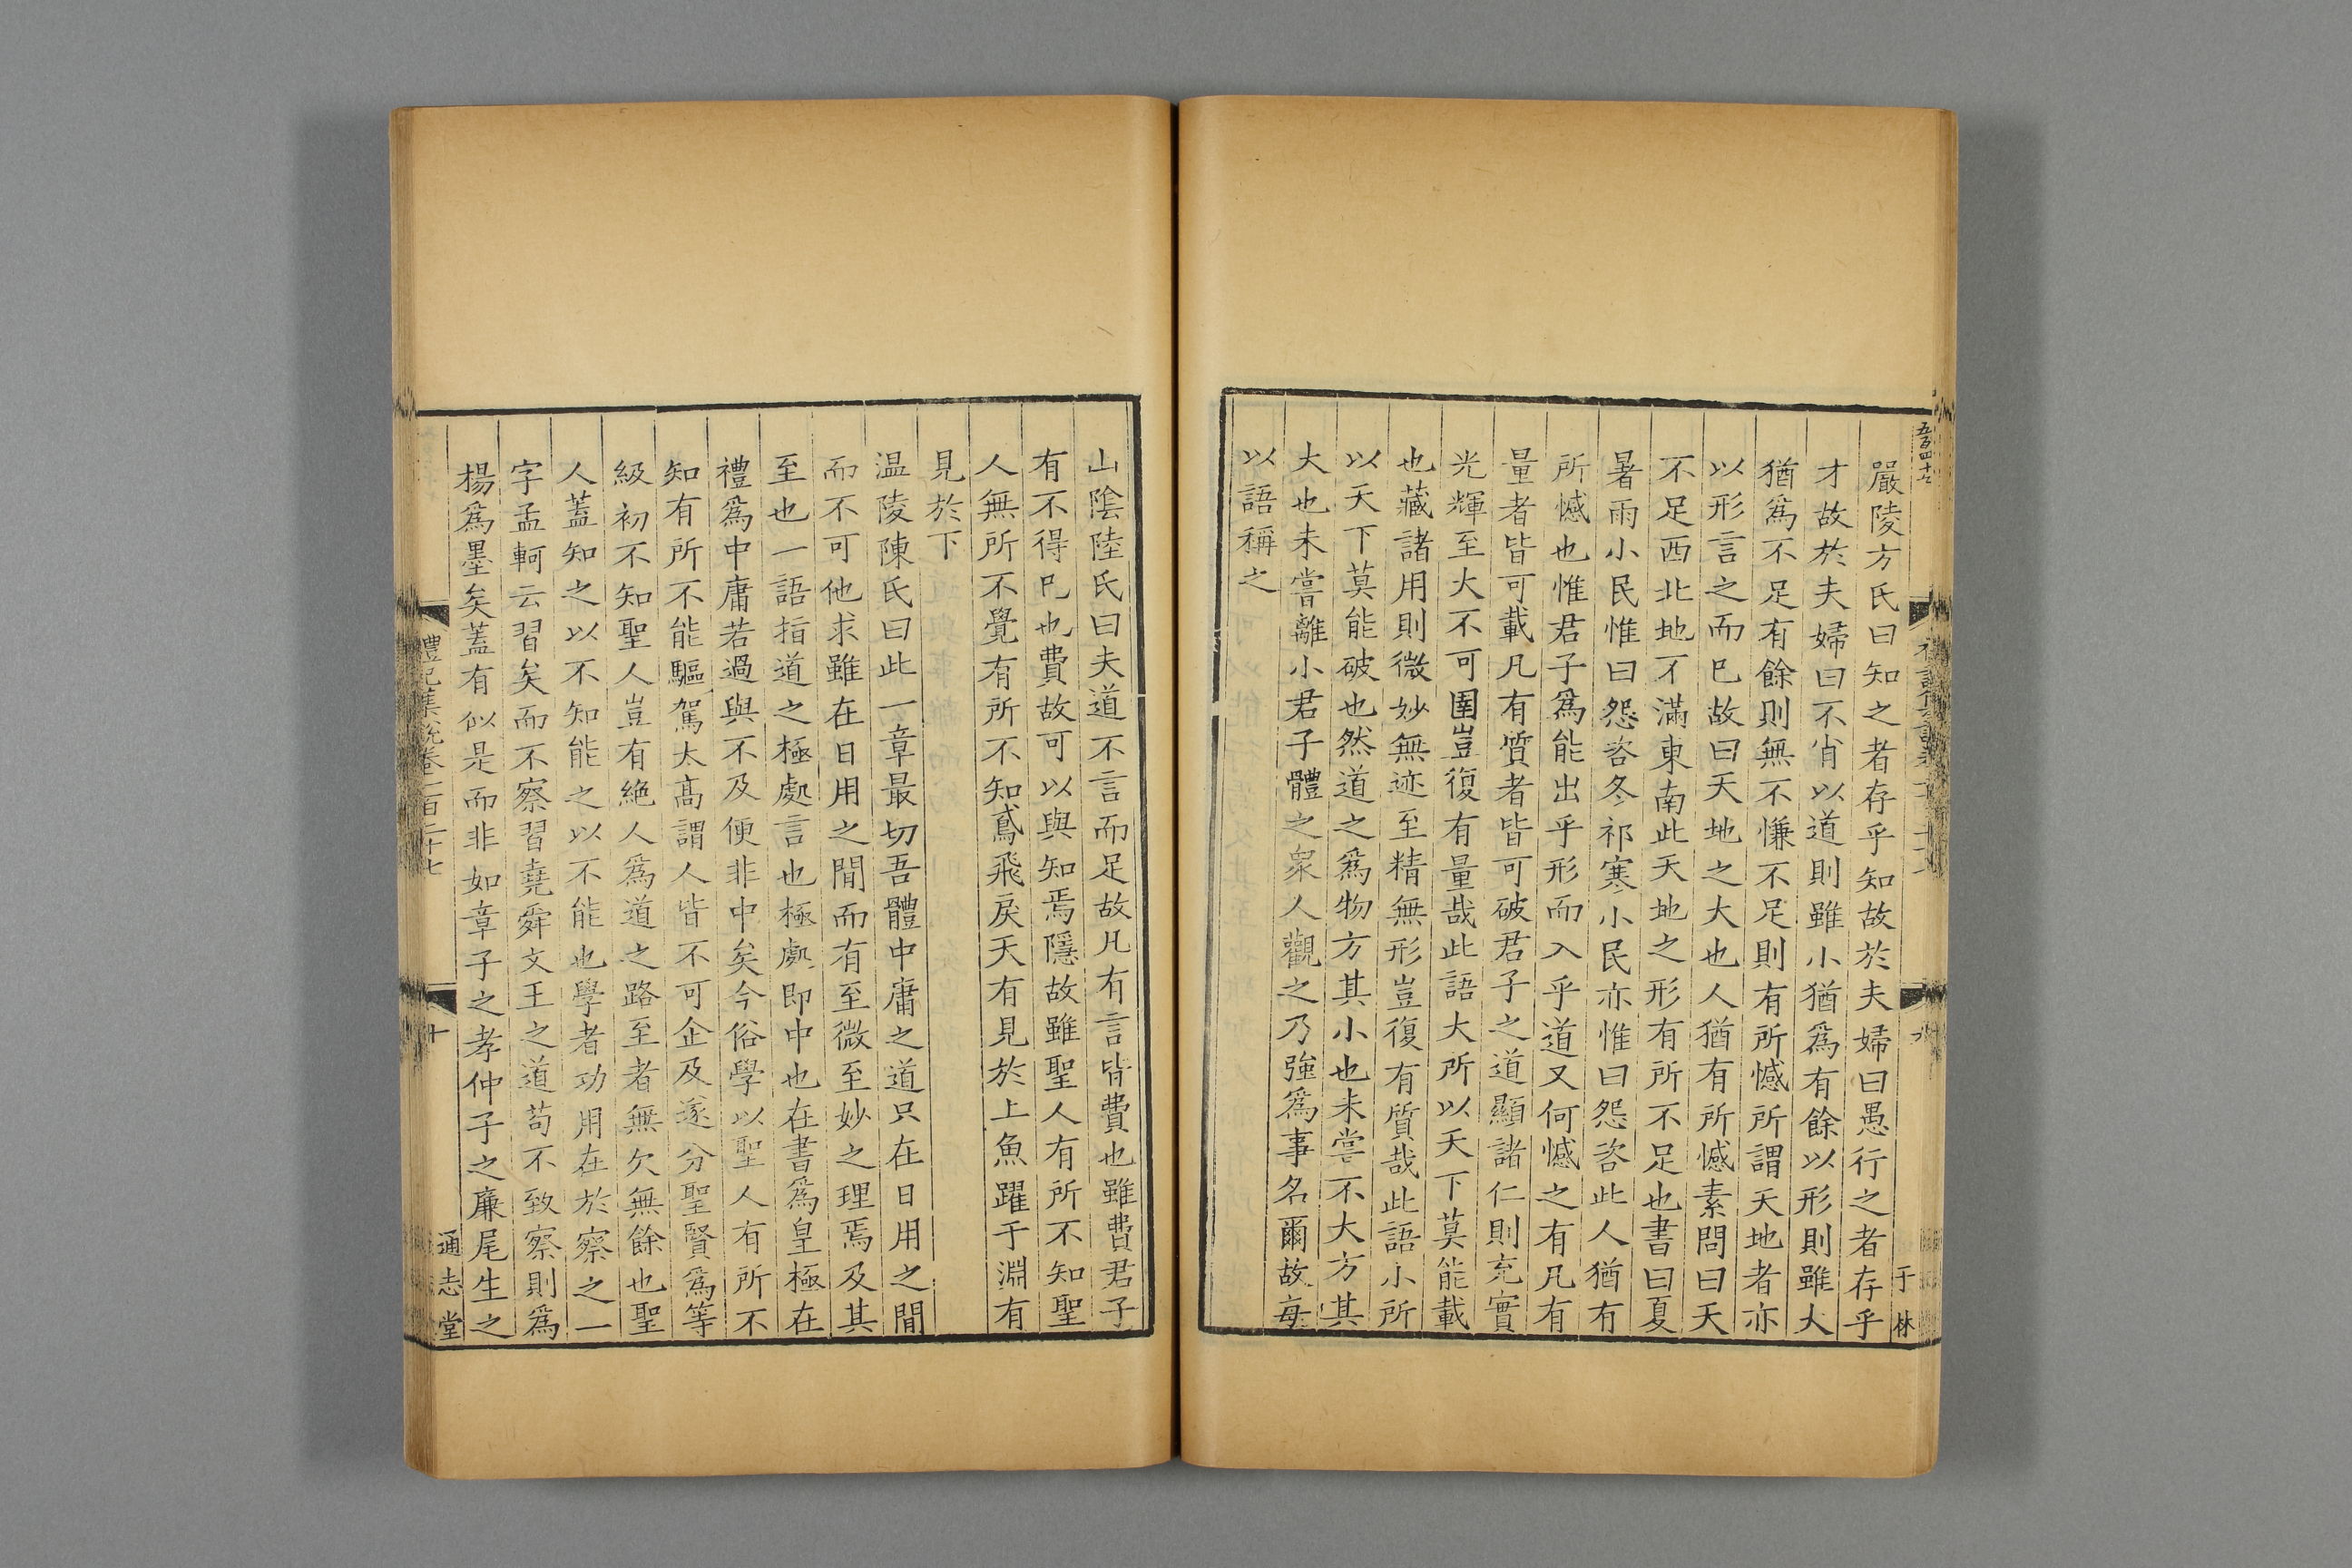 嚴陵方氏曰知之者存乎知故於夫婦曰愚行之者存乎
才故於夫婦曰不肖以道則雖小猶爲有餘以形則雖大
猶爲不足有餘則無不慊不足則有所憾所謂天地者亦
以形言之而已故曰天地之大也人猶有所憾素問曰天
不足西北地不滿東南此天地之形有所不足也書曰夏
暑雨小民惟曰怨咨冬祁寒小民亦惟曰怨咨此人猶有
所憾也惟君子爲能出乎形而入乎道又何憾之有凡有
量者皆可載凡有質者皆可破君子之道顯諸仁則充實
光輝至大不可圉豈復有量哉此語大所以天下莫能載
也藏諸用則微妙無迹至精無形豈復有質哉此語小所
以天下莫能破也然道之爲物方其小也未嘗不大方其
大也未嘗離小君子體之衆人觀之乃強爲事名爾故每
以語稱之
于林
九
山隂陸氏曰夫道不言而足故凡有言皆費也雖費君子
有不得已也費故可以與知焉隱故雖聖人有所不知聖
人無所不覺有所不知鳶飛戾天有見於上魚躍于淵有
見於下
温陵陳氏曰此一章最切吾體中庸之道只在日用之間
而不可他求雖在日用之間而有至微至妙之理焉及其
至也一語指道之極處言也極處即中也在書爲皇極在
禮爲中庸若過與不及便非中矣今俗學以聖人有所不
知有所不能驅駕太高謂人皆不可企及遂分聖賢爲等
級初不知聖人豈有絶人爲道之路至者無欠無餘也聖
人蓋知之以不知能之以不能也學者功用在於察之一
字孟軻云習矣而不察習堯舜文王之道苟不致察則爲
楊爲墨矣蓋有似是而非如章子之孝仲子之廉尾生之
禮記集説卷一百二十七
十
通志堂